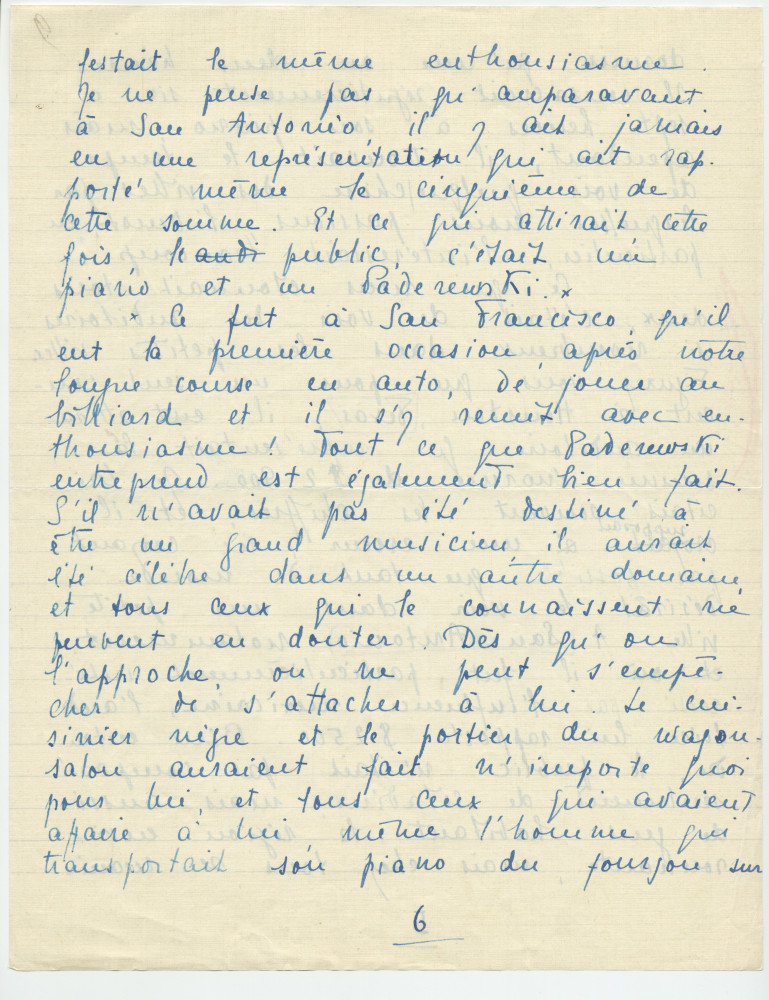 festait le même enthousiasme.
Je ne pense pas qu'auparavant
à San Antonio il y ait jamais
eu une représentation qui ait rap-
porté même le cinquième de
cette somme. Et ce qui attirait cette
fois le audi public, c'était un
piano et un Paderewski. *
* Ce fut à San Francisco, qu'il
eut la première occasion, après notre
longue course en auto, de jouer au
billiard et il s'y remit avec en-
thousiasme! Tout ce que Paderewski
entreprend est également bien fait.
S'il n'avait pas été destiné à
être un grand musicien il aurait
été célèbre dans un autre domaine
et tous ceux qui le connaissent ne
peuvent en douter. Dès qu'on
l'approche, on ne peut s'empê-
cher de s'attacher à lui. Le cui-
sinier nègre et le portier du wagon-
salon auraient fait n'importe quoi
pour lui, et tous ceux qui avaient
affaire à lui même l'homme qui
transportait son piano du fourgon sur
6